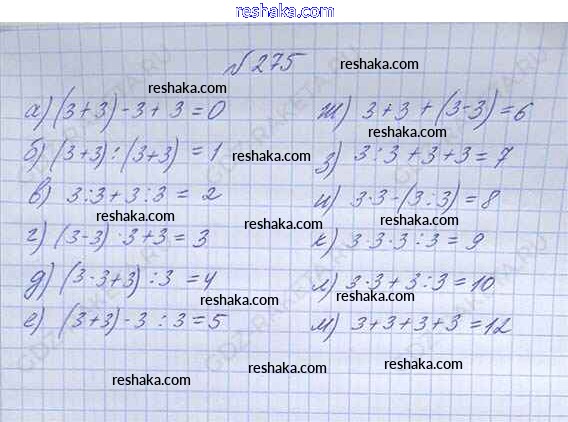 reshaka.com
№ 275
reshaka.com
reshaka.com
а) (3+3) - 3 + 3 = 0
ж) 3+3 + (3-3) = 6
reshaka.com
б) (3+3) : (3+3) = 1
reshaka.com
з) 3 : 3 + 3 + 3 = 7
в) 3 : 3 + 3 : 3 = 2
и) 3·3 - (3 : 3) = 8
reshaka.com
reshaka.com
reshaka.com
г) (3-3) · 3 + 3 = 3
к) 3·3·3 : 3 = 9
д) (3·3+3) : 3 = 4
л) 3·3 + 3 : 3 = 10
reshaka.com
reshaka.com
е) (3+3) - 3 : 3 = 5
м) 3+3+3+3 = 12
reshaka.com
reshaka.com
GDZ-RAKETA.RU